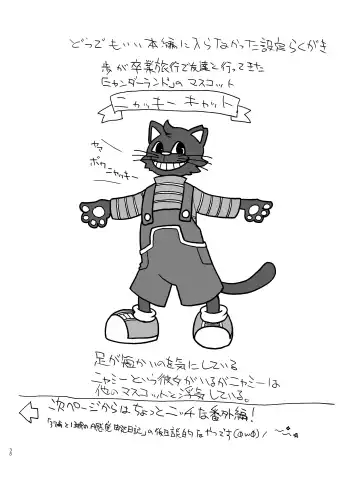 どうでもいい本編に入らなかった設定らくがき
歩が卒業旅行で友達と行ってきた
「モンダーランド」のマスコット
ニャッキーキャット
ヤァ
ボク
ニャッキー
足が短かいのを気にしている
ニャミーという彼女がいるがニャミーは
他のマスコットと浮気している。
次ページからはちょっとニッチな番外編!
の後日談的なやつです(ФωФ)ノ